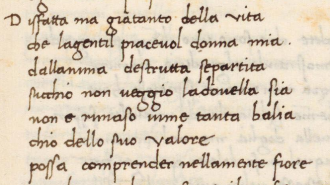 Disfatta ma gia tanto della vita
che lagentil piacevol donna mia .
dallanima destrutta separtita
sicchio non veggio ladovella sia
non e rimaso inme tanta balia
chio dello suo valore
possa comprender nellamente fiore